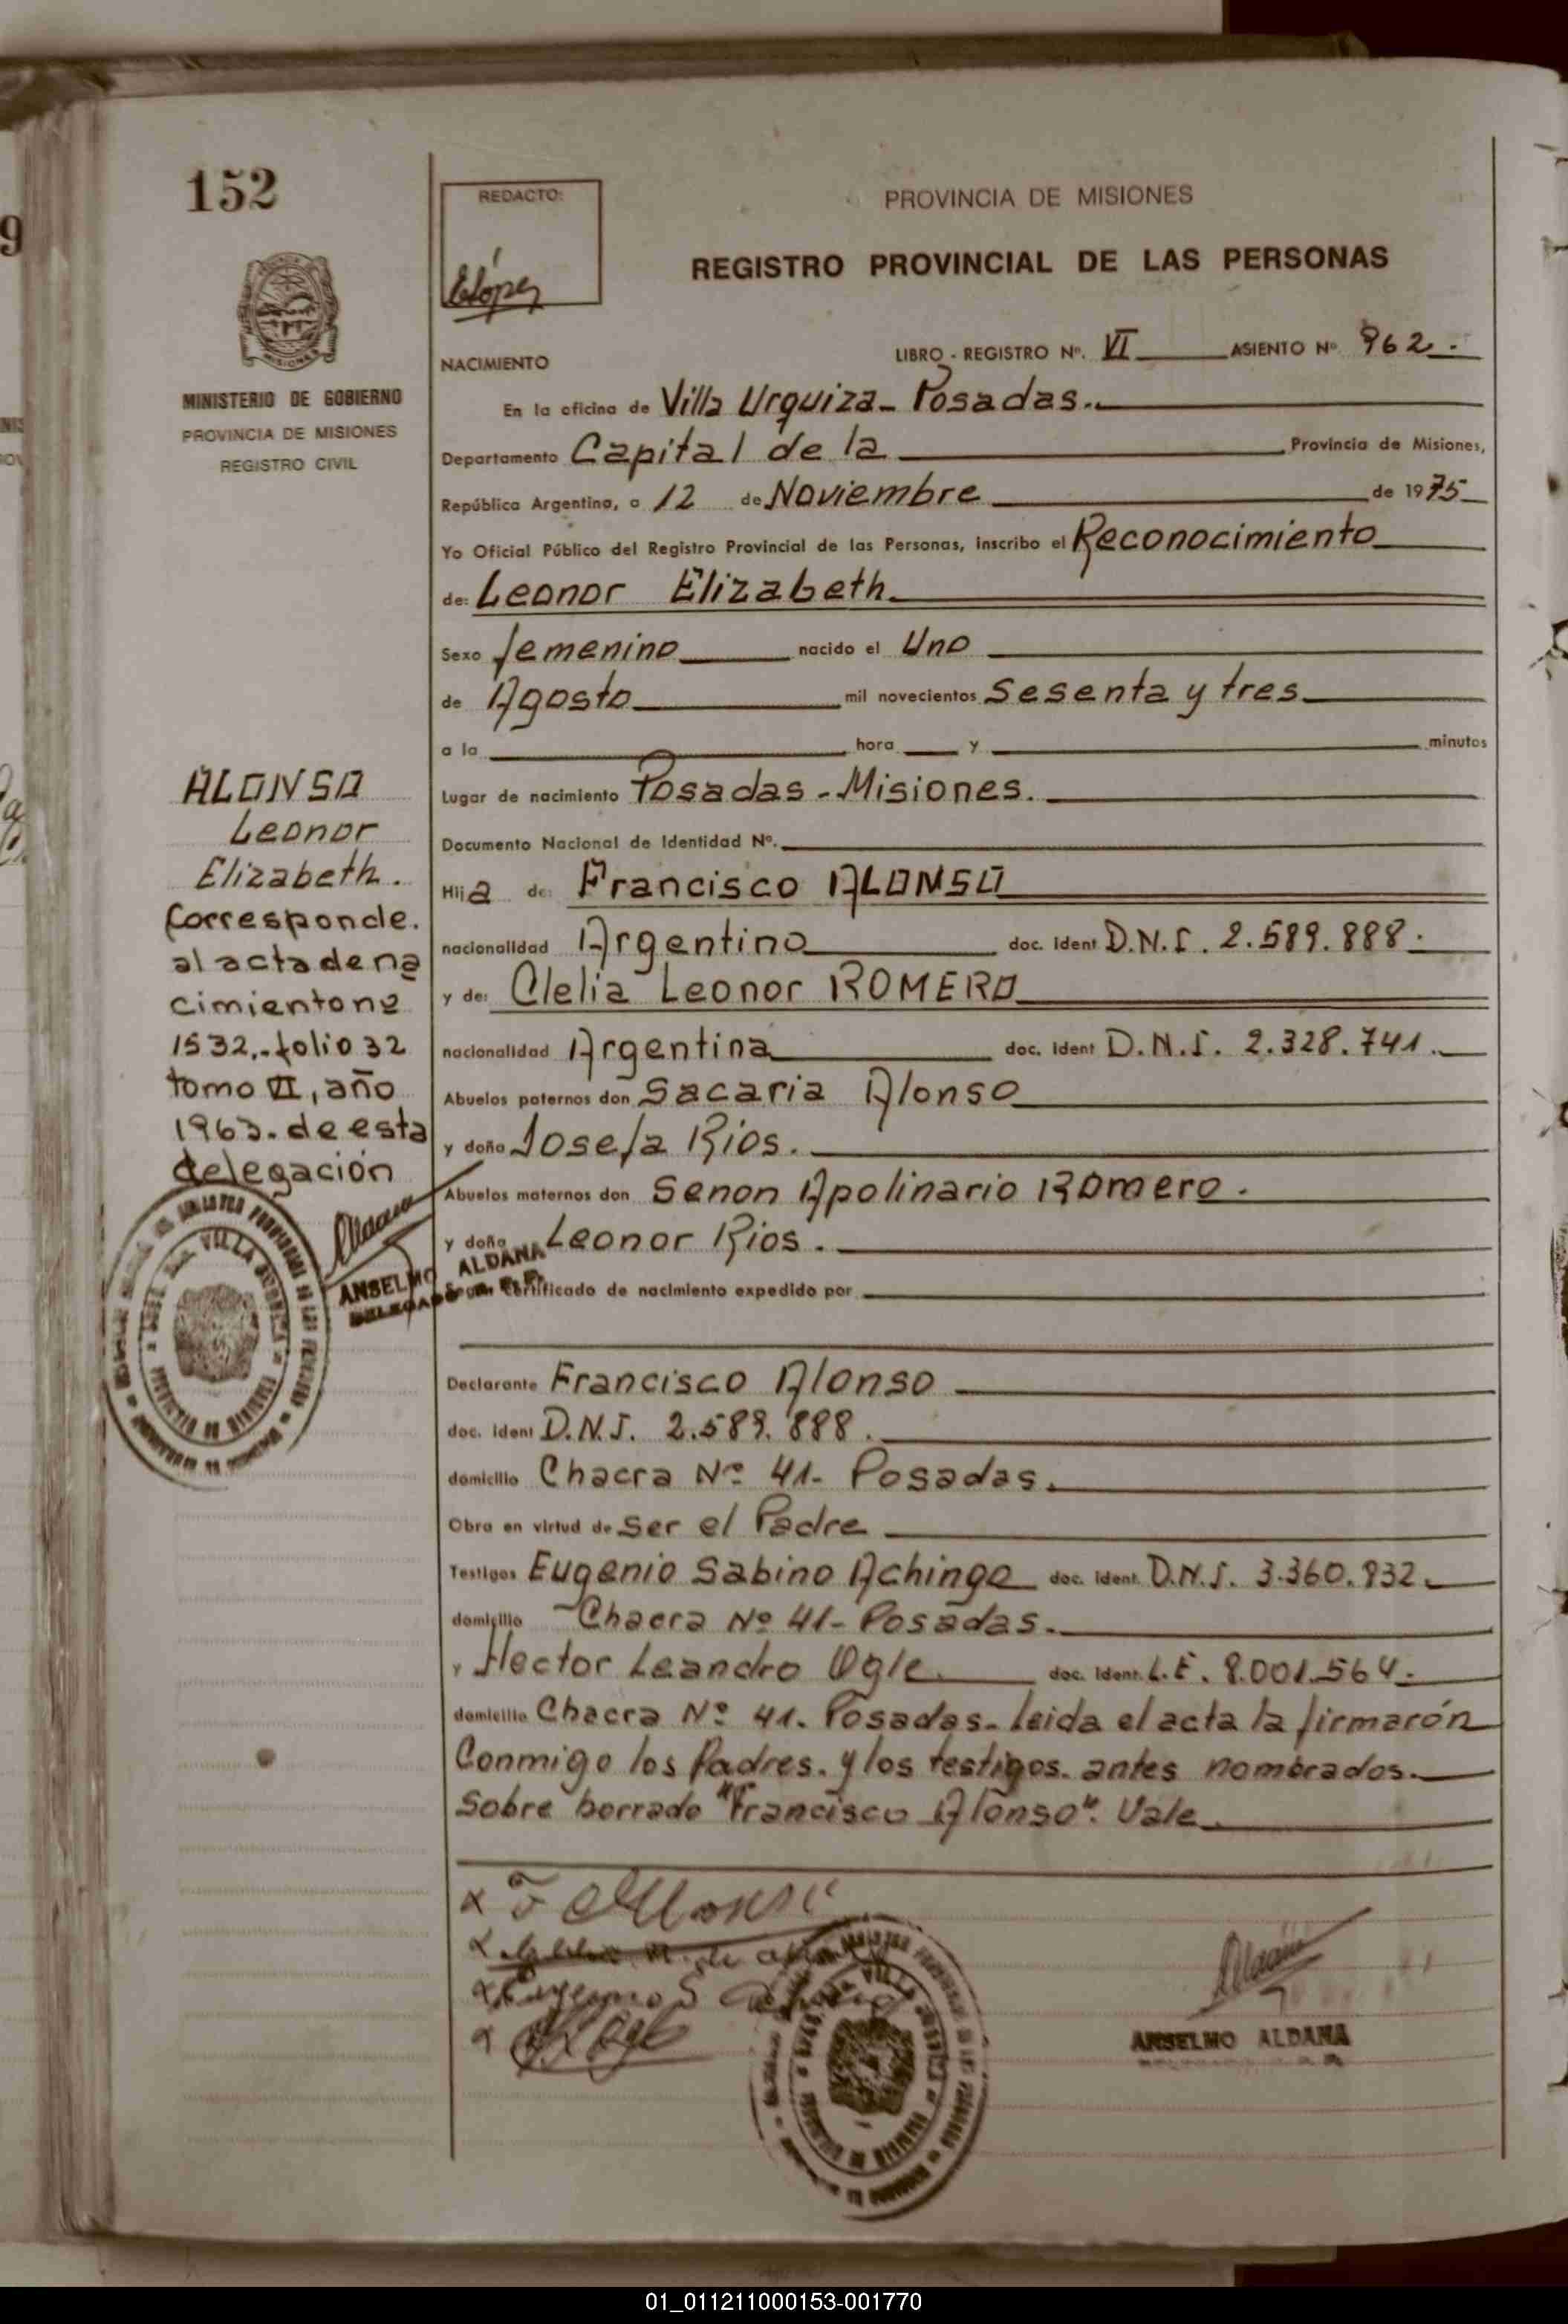 152
REDACTO:
López
PROVINCIA DE MISIONES
REGISTRO PROVINCIAL DE LAS PERSONAS
MINISTERIO DE GOBIERNO
PROVINCIA DE MISIONES
REGISTRO CIVIL
NACIMIENTO
LIBRO - REGISTRO Nº. VI ASIENTO Nº 962.
En la oficina de Villa Urquiza - Posadas.
Departamento Capital de la Provincia de Misiones,
República Argentina, a 12 de Noviembre de 1975
Yo Oficial Público del Registro Provincial de las Personas, inscribo el Reconocimiento
de: Leonor Elizabeth
Sexo femenino nacido el Uno
de Agosto mil novecientos Sesenta y tres
a la hora y minutos
Lugar de nacimiento Posadas - Misiones.
Documento Nacional de Identidad Nº.
Hija de: Francisco ALONSO
nacionalidad Argentino doc. ident D.N.I. 2.589.888.
y de: Clelia Leonor ROMERO
nacionalidad Argentina doc. ident D.N.I. 2.328.741.
Abuelos paternos don Sacaria Alonso
y doña Josefa Rios.
Abuelos maternos don Senon Apolinario Romero.
y doña Leonor Rios.
certificado de nacimiento expedido por
ALONSO
Leonor
Elizabeth.
Corresponde.
al acta de na
cimiento nº
1532.- folio 32
tomo VI, año
1963. de esta
delegación
ANSELMO ALDANA
Declarante Francisco Alonso
doc. ident D.N.I. 2.589.888.
domicilio Chacra Nº 41- Posadas.
Obra en virtud de ser el Padre
Testigos Eugenio Sabino Achinge doc. ident. D.N.I. 3.360.932.
domicilio Chacra Nº 41- Posadas.
y Hector Leandro Ogle. doc. ident. L.E. 8.001.564.
domicilio Chacra Nº 41. Posadas- leida el acta la firmarón
Conmigo los Padres. y los testigos. antes nombrados.
Sobre borrado "Francisco Alonso". Vale
ANSELMO ALDANA
01_011211000153-001770